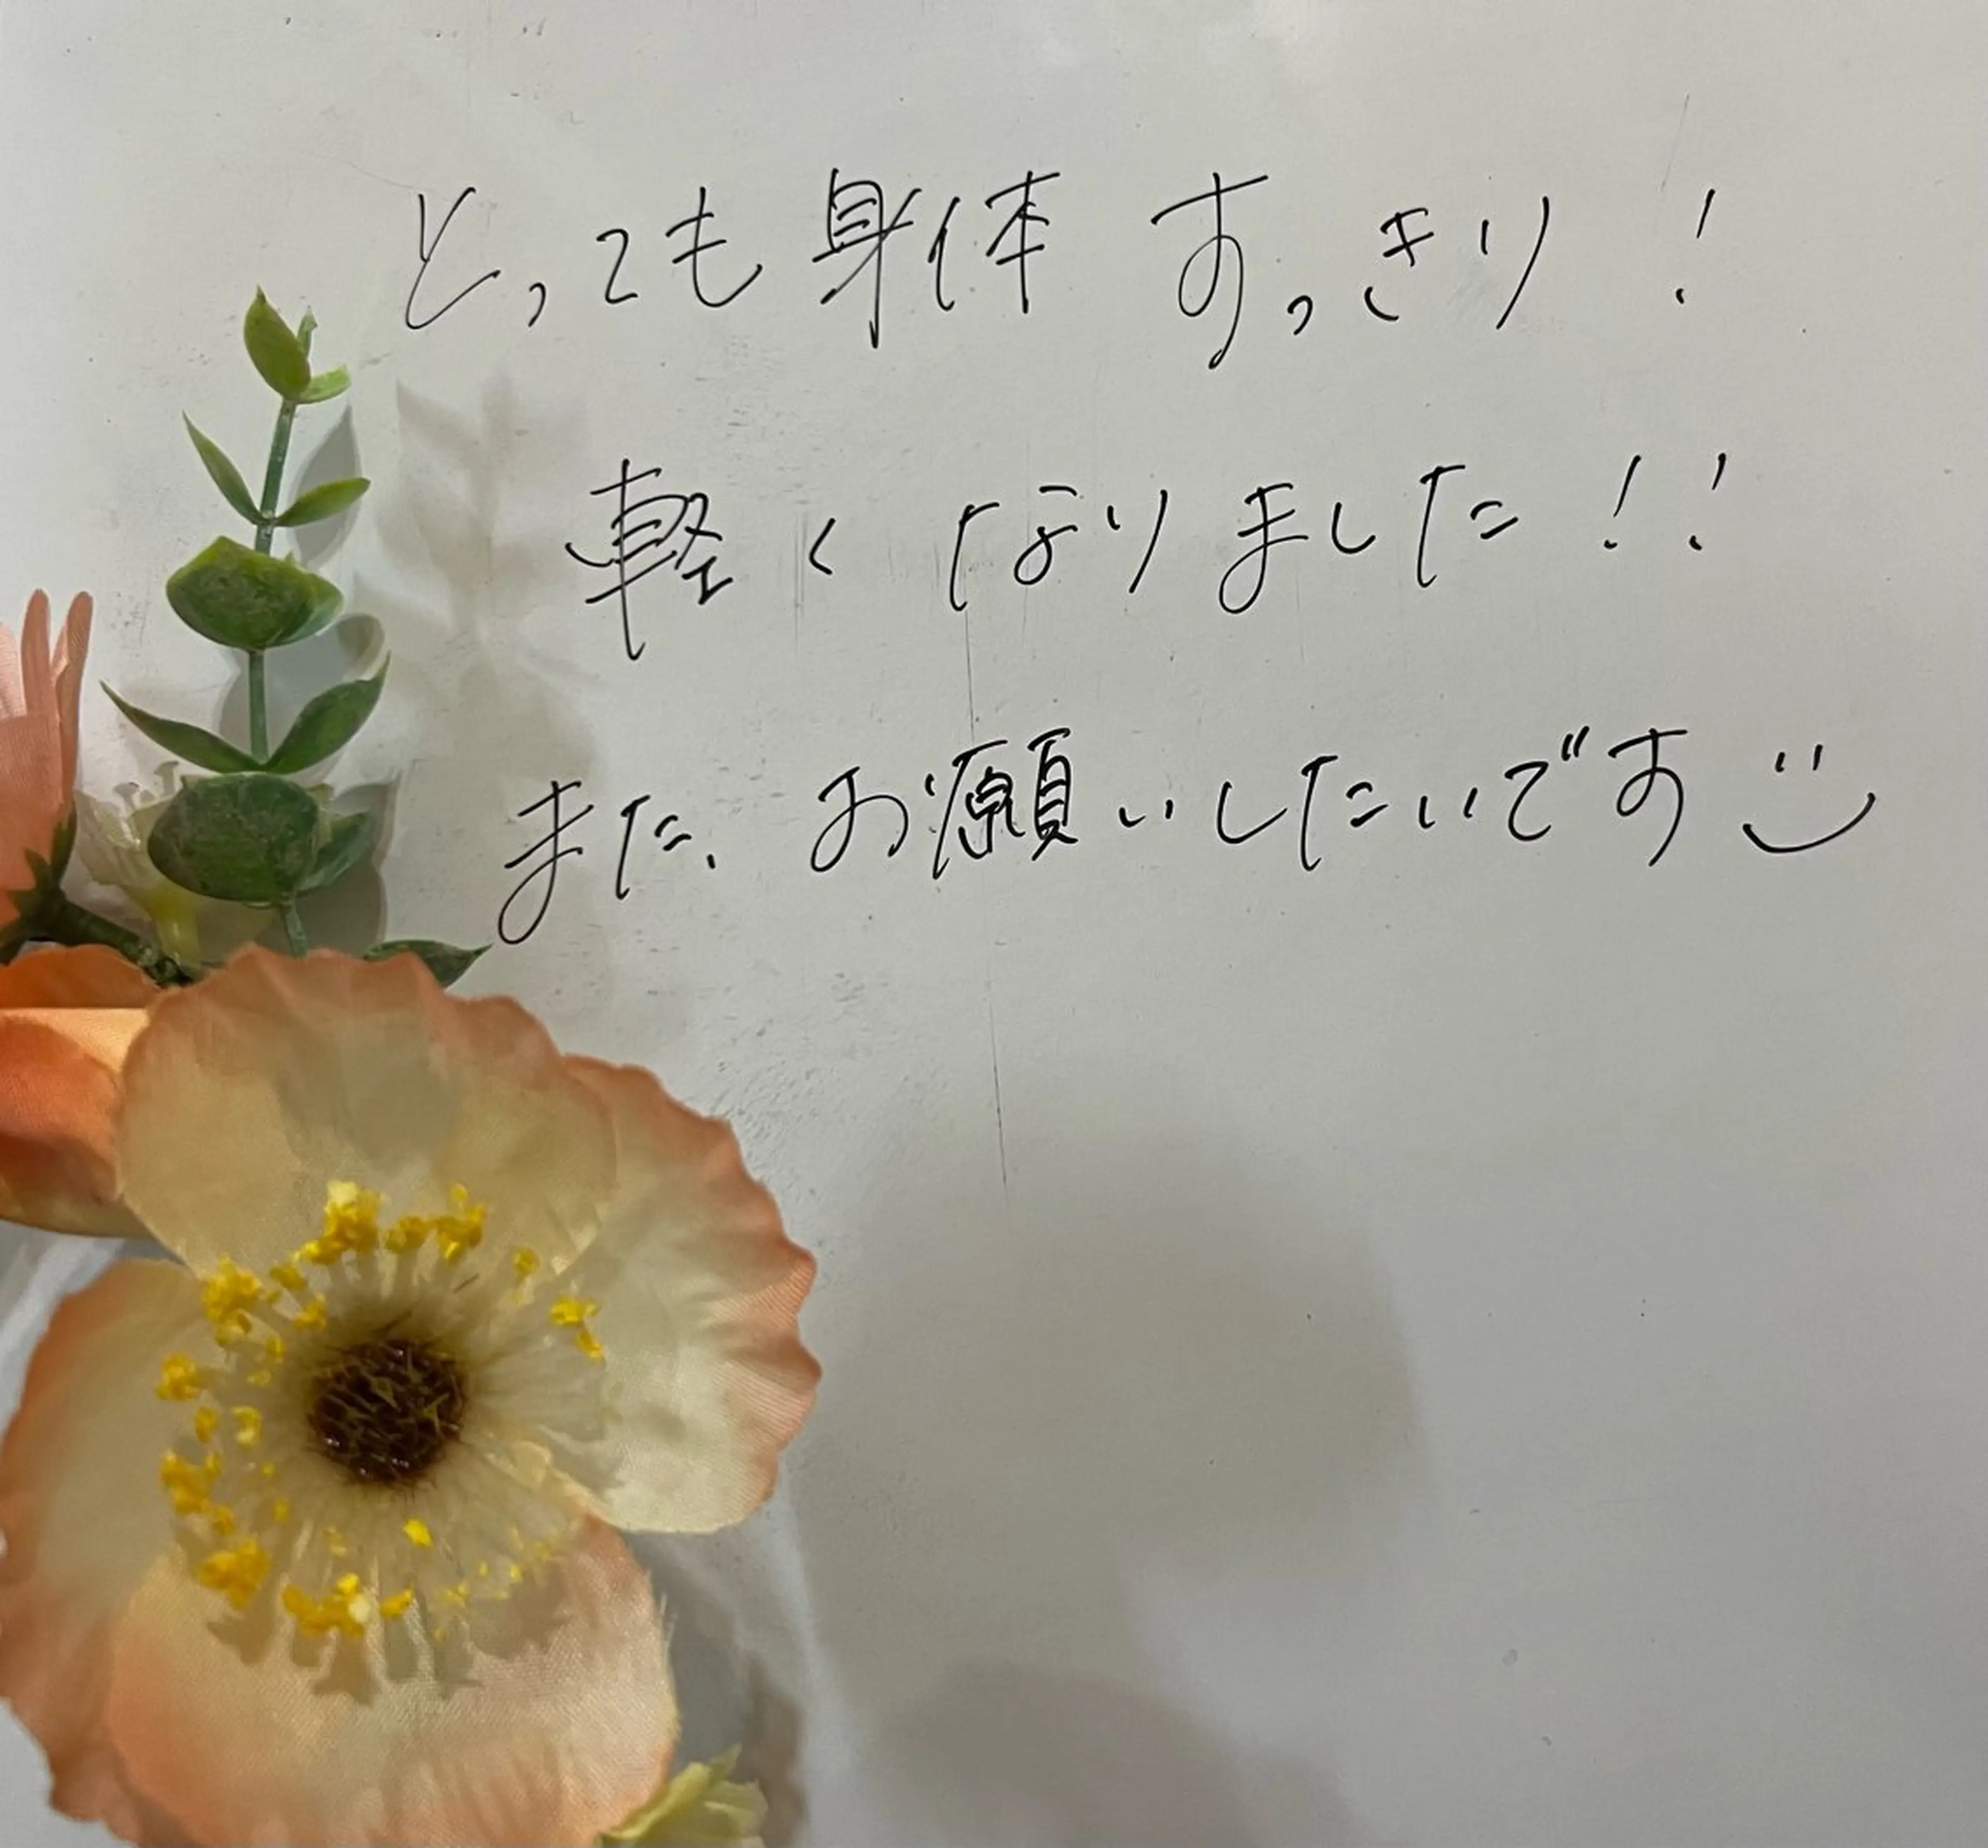 とっても身体 すっきり！
軽く なりました！！
また、お願いしたいです